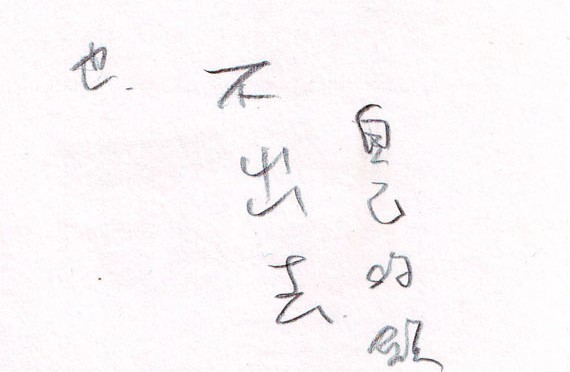 自己的
不出去.
也.